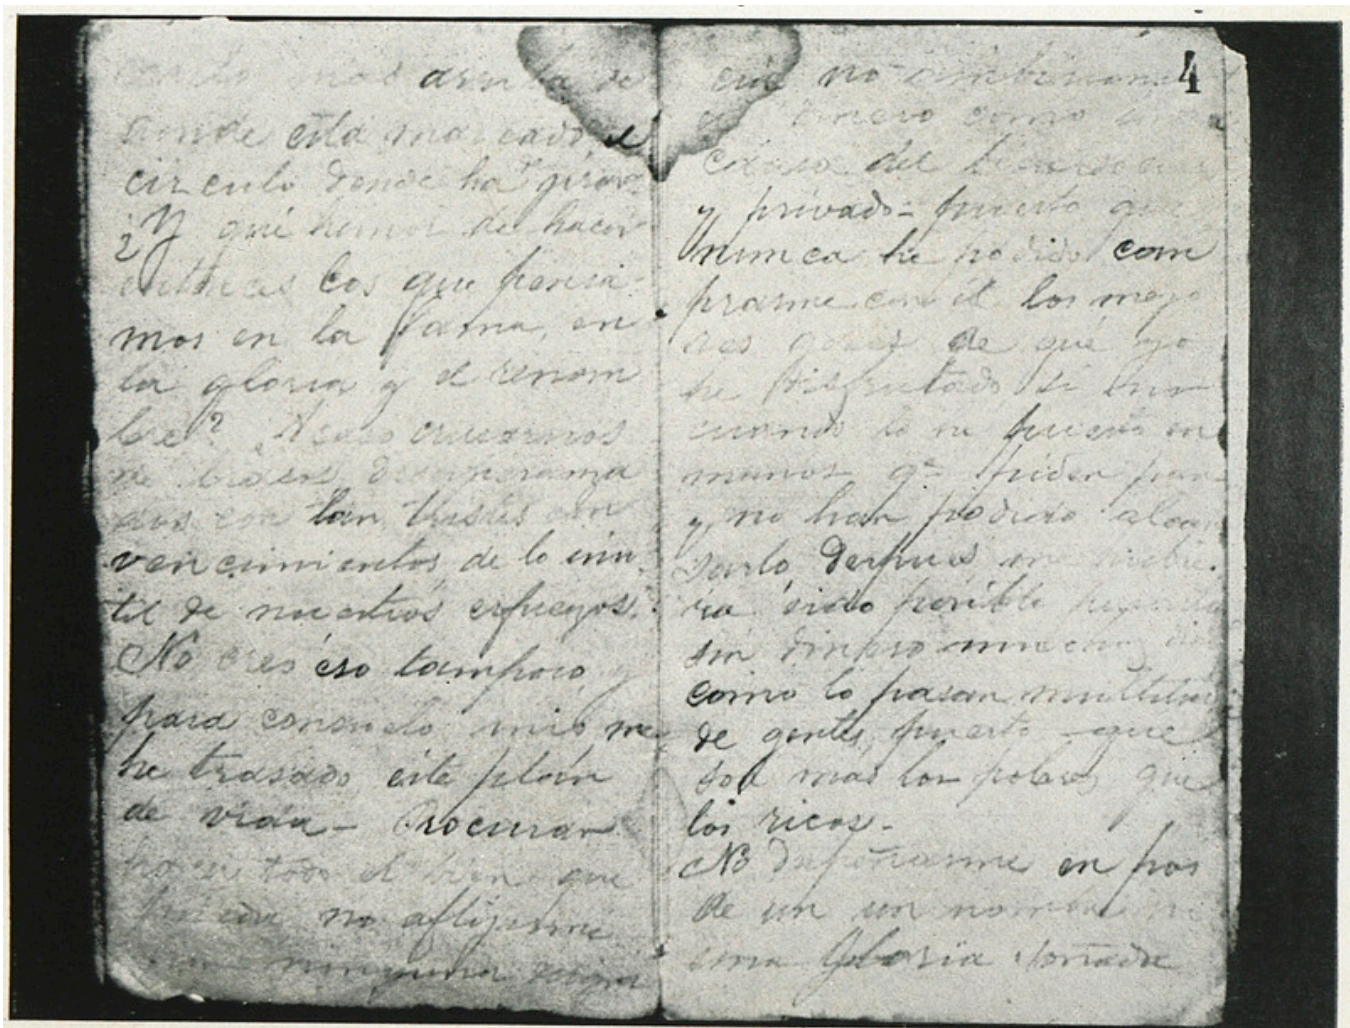 donde esta marcado el
circulo donde ha girar
¿Y qué hemos de hacer
entonces los que pensa-
mos en la fama, en
la gloria y el renom
bre? Acaso cruzarnos
de brazos
con tan tristes con
vencimientos de lo inu
til de nuestros esfuerzos.
No creo eso tampoco y
para consuelo mio me
he trasado este plan
de vida - Procurar
hacer todo el bien que
pueda no aflijirme
ninguna
4
no
dinero como
causa del
y privado - puesto que
nunca he podido com
prarme con él los mejo
res goces de qué yo
he disfrutado si
cuando lo he puesto en
manos q.e piden pan
y no han podido alcan
sarlo despues me hubie
ra sido posible
sin dinero muchos
como lo pasan multitud
de gentes, puesto que
son mas los pobres que
los ricos -
No en pos
de un un nombre ni
una Gloria soñada